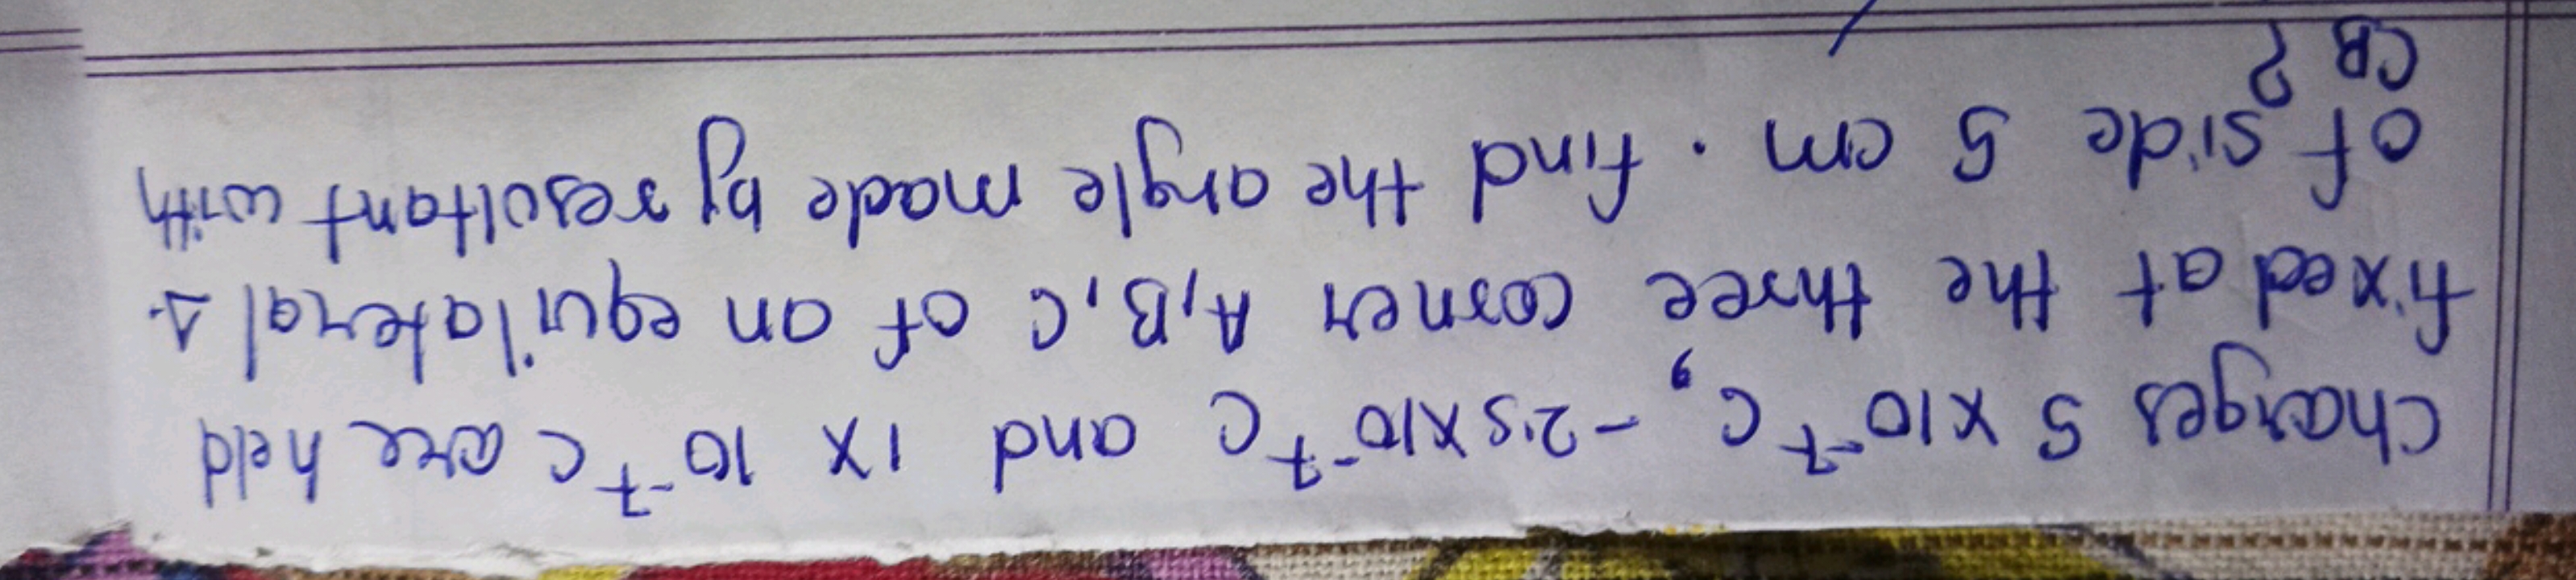 Charges 5 x 10⁻⁷ C, -2.5x10⁻⁷ C and 1x 10⁻⁷ C are held
fixed at the three corner A,B,C of an equilateral Δ.
of side 5 cm. find the angle made by resultant with
CB ?